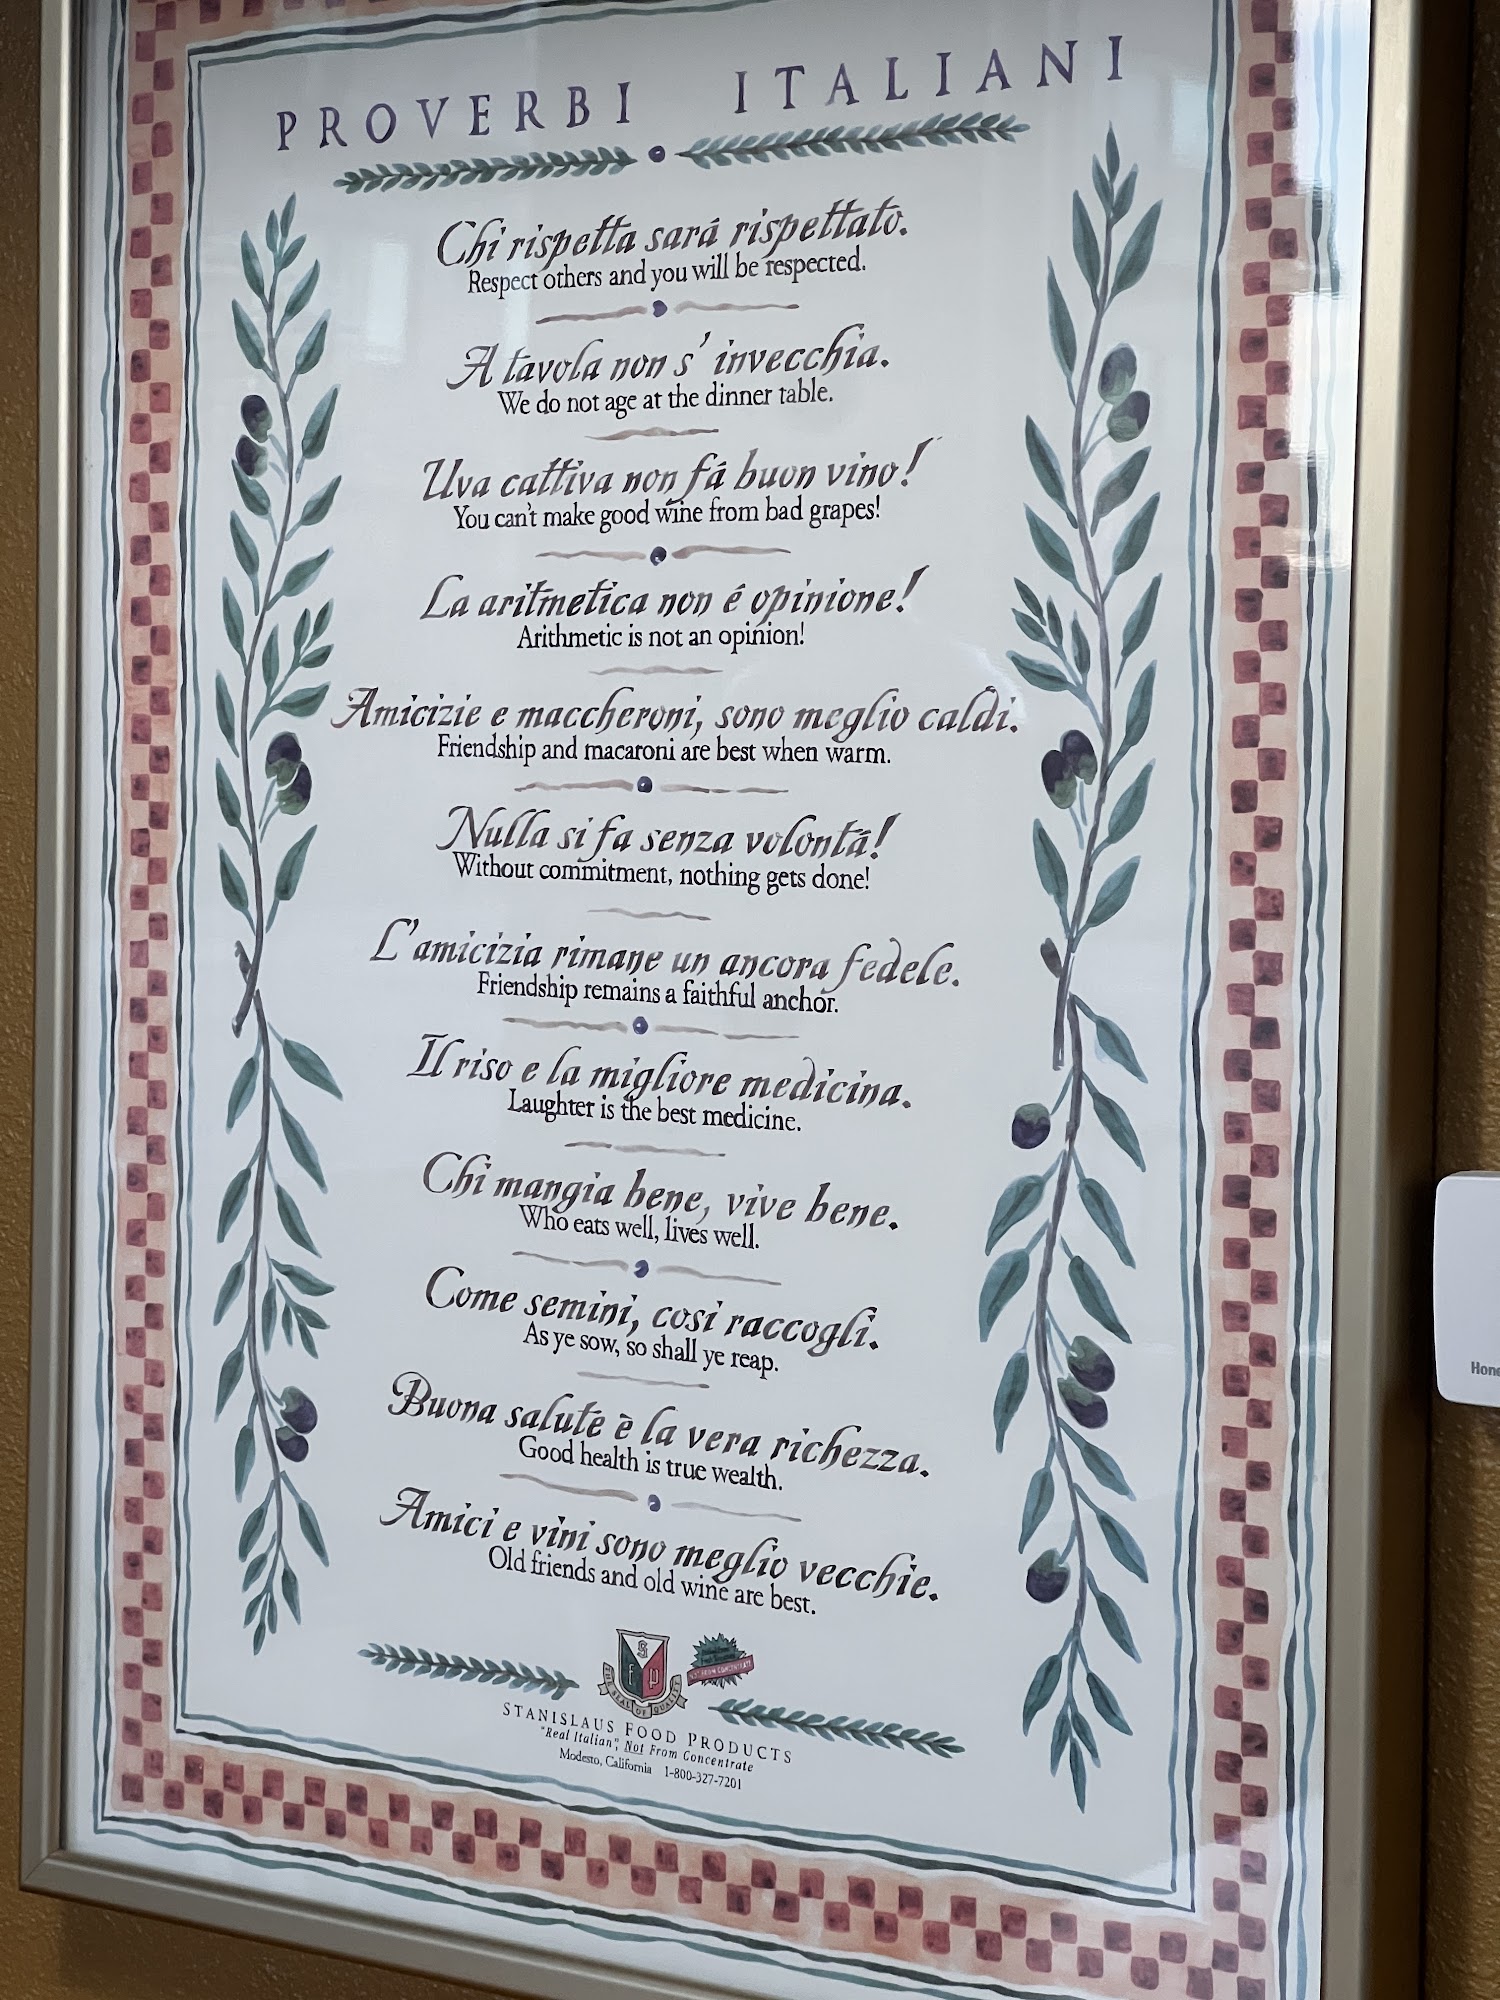 PROVERBI ITALIANI
Chi rispetta sará rispettato.
Respect others and you will be respected.
A tavola non s' invecchia.
We do not age at the dinner table.
Uva cattiva non fá buon vino!
You can't make good wine from bad grapes!
La aritmetica non é opinione!
Arithmetic is not an opinion!
Amicizie e maccheroni, sono meglio caldi.
Friendship and macaroni are best when warm.
Nulla si fa senza volontá!
Without commitment, nothing gets done!
L'amicizia rimane un ancora fedele.
Friendship remains a faithful anchor.
Il riso e la migliore medicina.
Laughter is the best medicine.
Chi mangia bene, vive bene.
Who eats well, lives well.
Come semini, cosi raccogli.
As ye sow, so shall ye reap.
Buona salute è la vera richezza.
Good health is true wealth.
Amici e vini sono meglio vecchie.
Old friends and old wine are best.
S F P
THE SEAL OF QUALITY
NOT FROM CONCENTRATE
STANISLAUS FOOD PRODUCTS
"Real Italian", Not From Concentrate
Modesto, California 1-800-327-7201